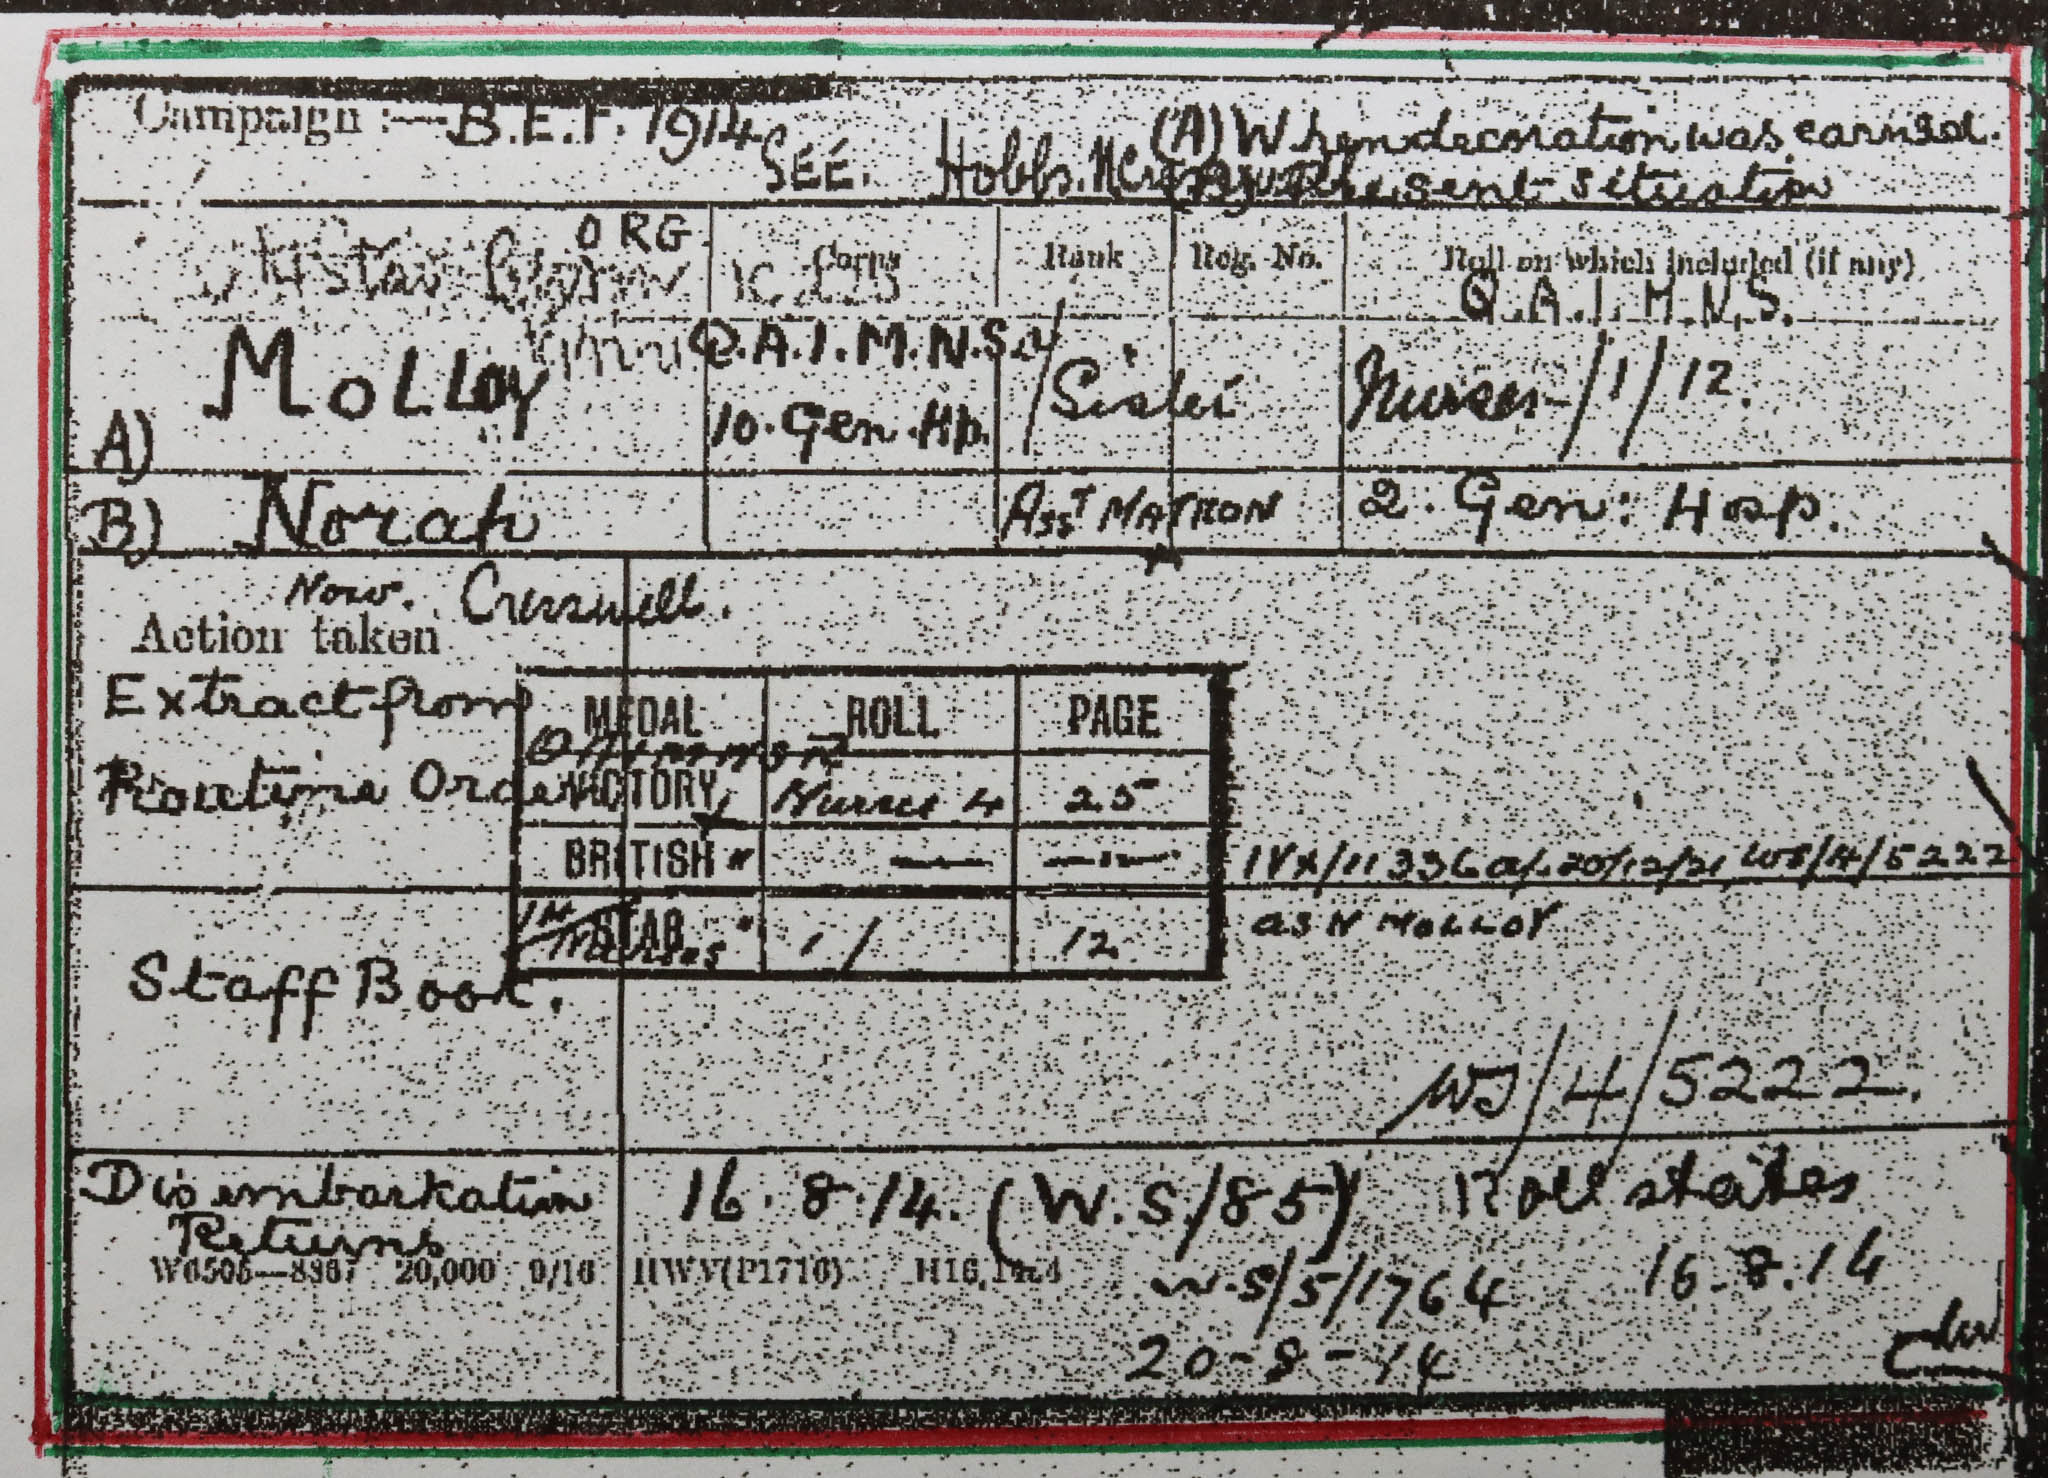 Campaign :— B.E.F. 1914
(A) When decoration was earned.
SEE. Hobbs. sent situation
ORG
Corps Rank Reg. No. Roll on which included (if any)
Q.A.I.M.N.S.
MOLLOY Q.A.I.M.N.S. Sister Nurses/1/12.
A) 10. Gen. Hp.
B) Norah Asst MATRON 2. Gen: Hosp.
Now. Cresswell.
Action taken
Extract from
Routine Order
MEDAL ROLL PAGE
VICTORY Nurses 4 25
BRITISH " — —"—
STAR 1/ 12
Nurses
IVX/11336 20/12/21 WS/4/5222
as N MOLLOY
Staff Book.
WS/4/5222.
Disembarkation
Returns
16.8.14. (W.S./85) Roll states
16.8.14
W6505—8367 20,000 9/16 HWV(P1710)
W.S/5/1764
20-8-14